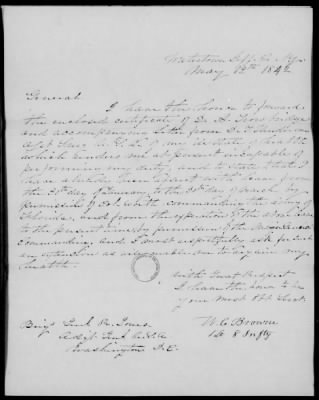 Watertown Jeff. Co. N.Y.
May 12th 1842
General
I have the honor to forward
the enclosed certificate of Dr. A. Trowbridge
and accompanying letter from Dr.
Asst Surg U.S.A. of my state of health
which renders me at present incapable of
performing my duty, and to state that I
have
from
the day of January, to the day of March by
permission of Col. Worth commanding the army of
Florida, and from the expiration of the
to the present time, by permission of the
Commanding, and I most respectfully ask for such
an extension as may enable me to regain my
health
With Great Respect
I have the honor to be
your most Obt Servt.
W. G. Browne
Lt 8 Infty
Brig. Genl. R. Jones
Adjt. Genl. U.S.A.
Washington D.C.